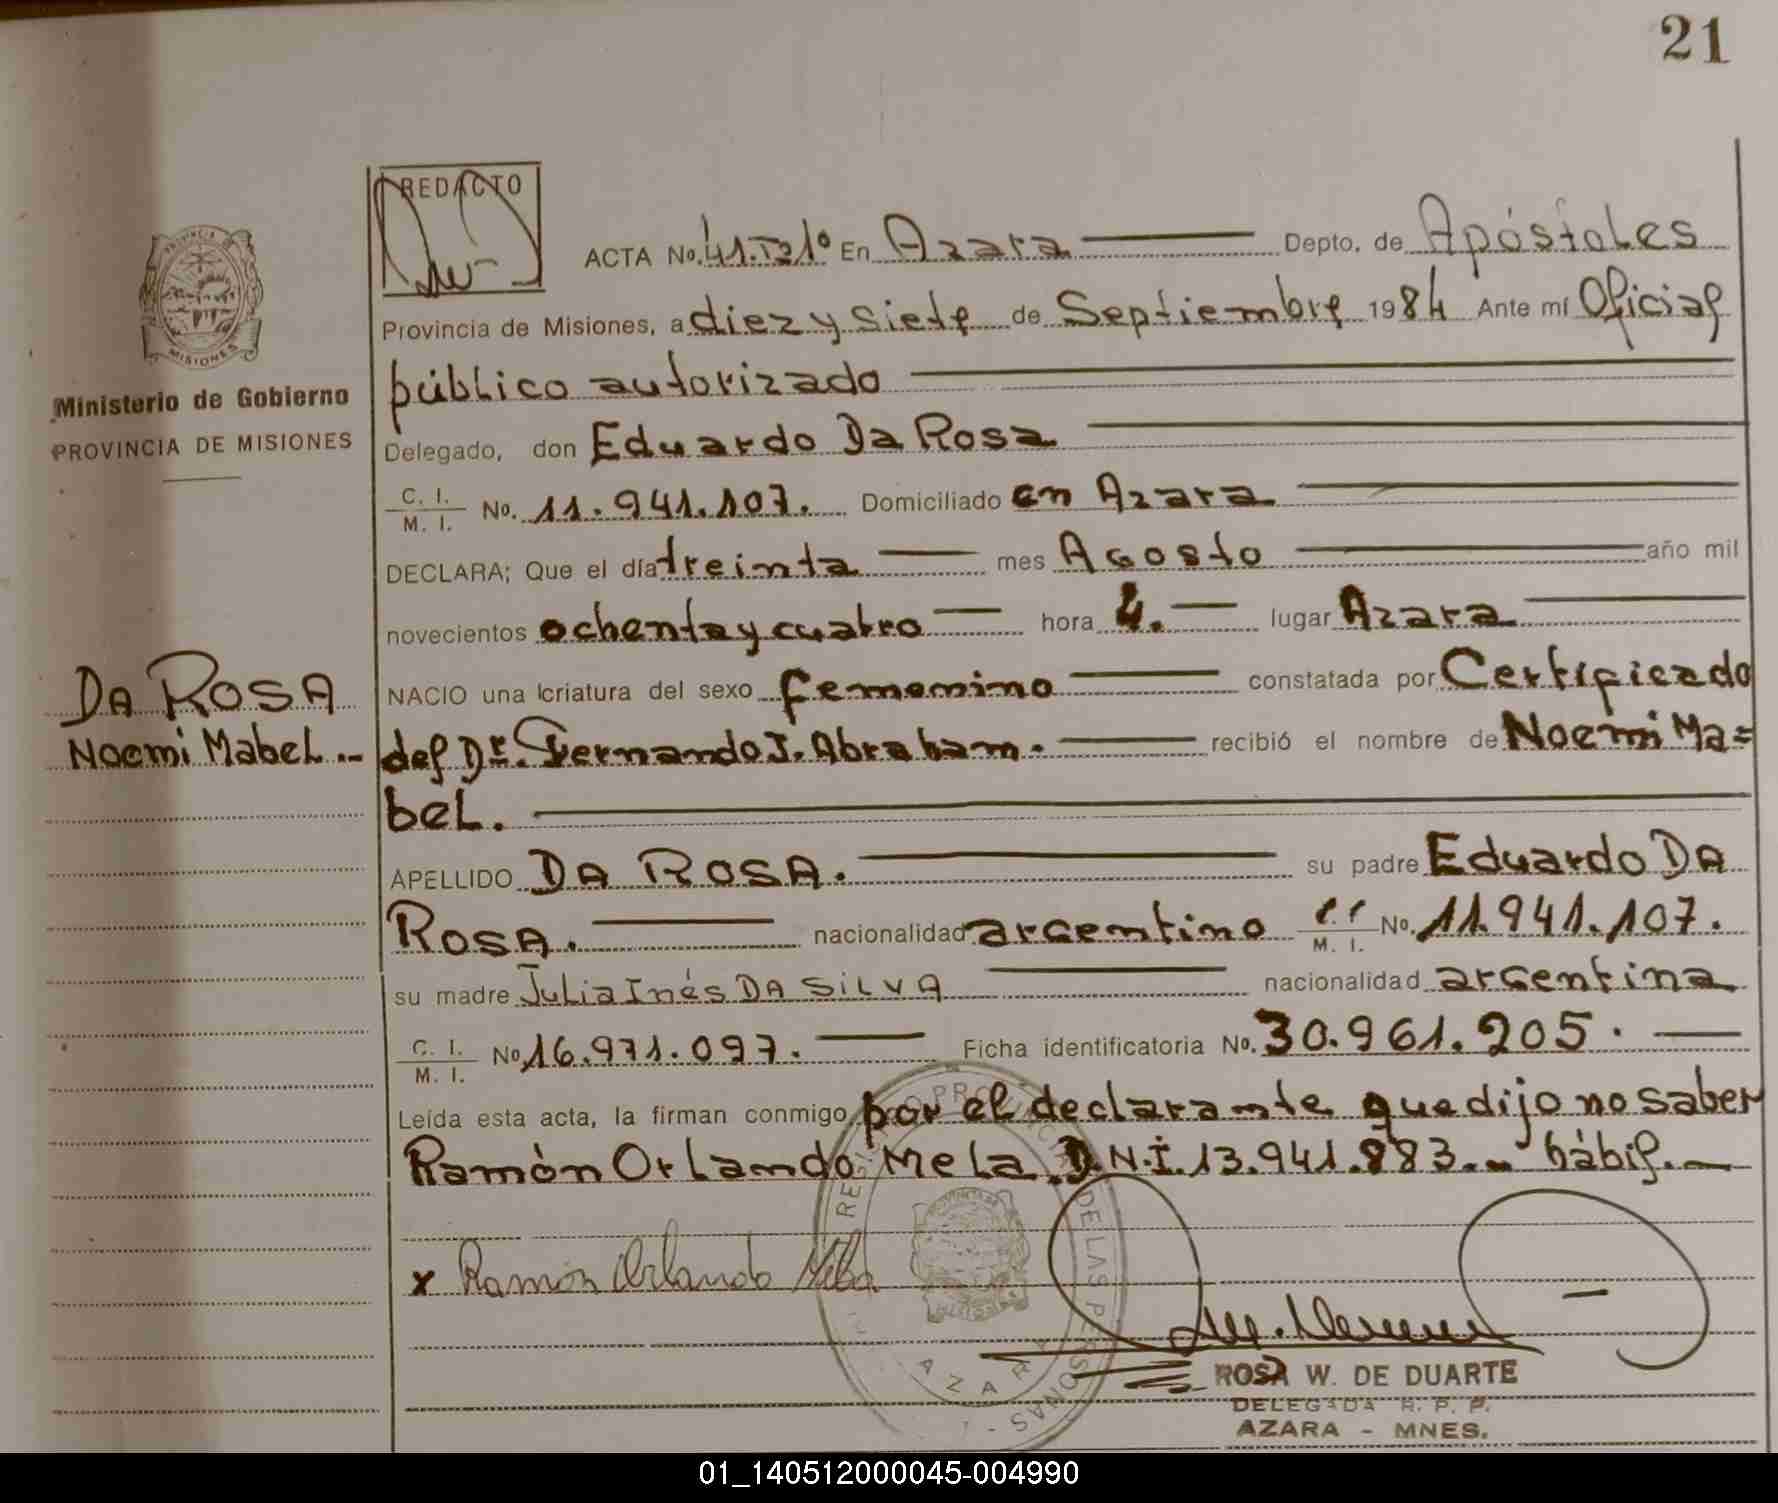 21
REDACTO
ACTA No. 41.Tº1º En Azara Depto. de Apóstoles
Provincia de Misiones, a diez y siete de Septiembre 1984 Ante mí Oficial
público autorizado
Delegado, don Eduardo Da Rosa
C. I. / M. I. No. 11.941.107. Domiciliado en Azara
DECLARA; Que el día treinta mes Agosto año mil
novecientos ochenta y cuatro hora 4. lugar Azara
NACIO una criatura del sexo femenino constatada por Certificado
del Dr. Fernando J. Abraham. recibió el nombre de Noemi Ma=
bel.
APELLIDO DA ROSA. su padre Eduardo DA
ROSA. nacionalidad argentino M. I. No. 11.941.107.
su madre Julia Inés DA SILVA nacionalidad argentina
C. I. / M. I. No. 16.971.097. Ficha identificatoria No. 30.961.205.
Leída esta acta, la firman conmigo por el declarante que dijo no saber
Ramón Orlando Mela D.N.I. 13.941.883.- hábil.
x Ramón Orlando Mela
ROSA W. DE DUARTE
DELEGADA R. P. P.
AZARA - MNES.
PROVINCIA DE MISIONES
Ministerio de Gobierno
PROVINCIA DE MISIONES
DA ROSA
Noemi Mabel.-
REGISTRO PROVINCIAL DE LAS PERSONAS
AZARA
01_140512000045-004990